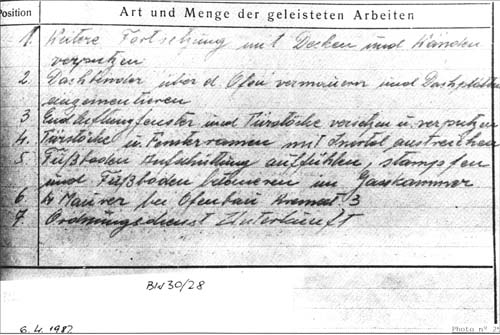 Position Art und Menge der geleisteten Arbeiten
1. Weitere Fortsetzung mit Decken und Wänden
verputzen
2. Dachbinder über d. Ofen vermauern und Dachplatten
einzementieren
3. Entlüftungfenster und Türstöcke versehen u. verputzen
4. Türstöcke u. Fensterramen mit Mörtel ausstreichen
5. Fußboden Aufschüttung auffühlen, stampfen
und Fußboden betonieren im Gasskammer
6. 4 Maurer bei Ofenbau Kremat 3
7. Ordnungsdienst Unterkunft
BW 30/28
6.4.1982
Photo n°